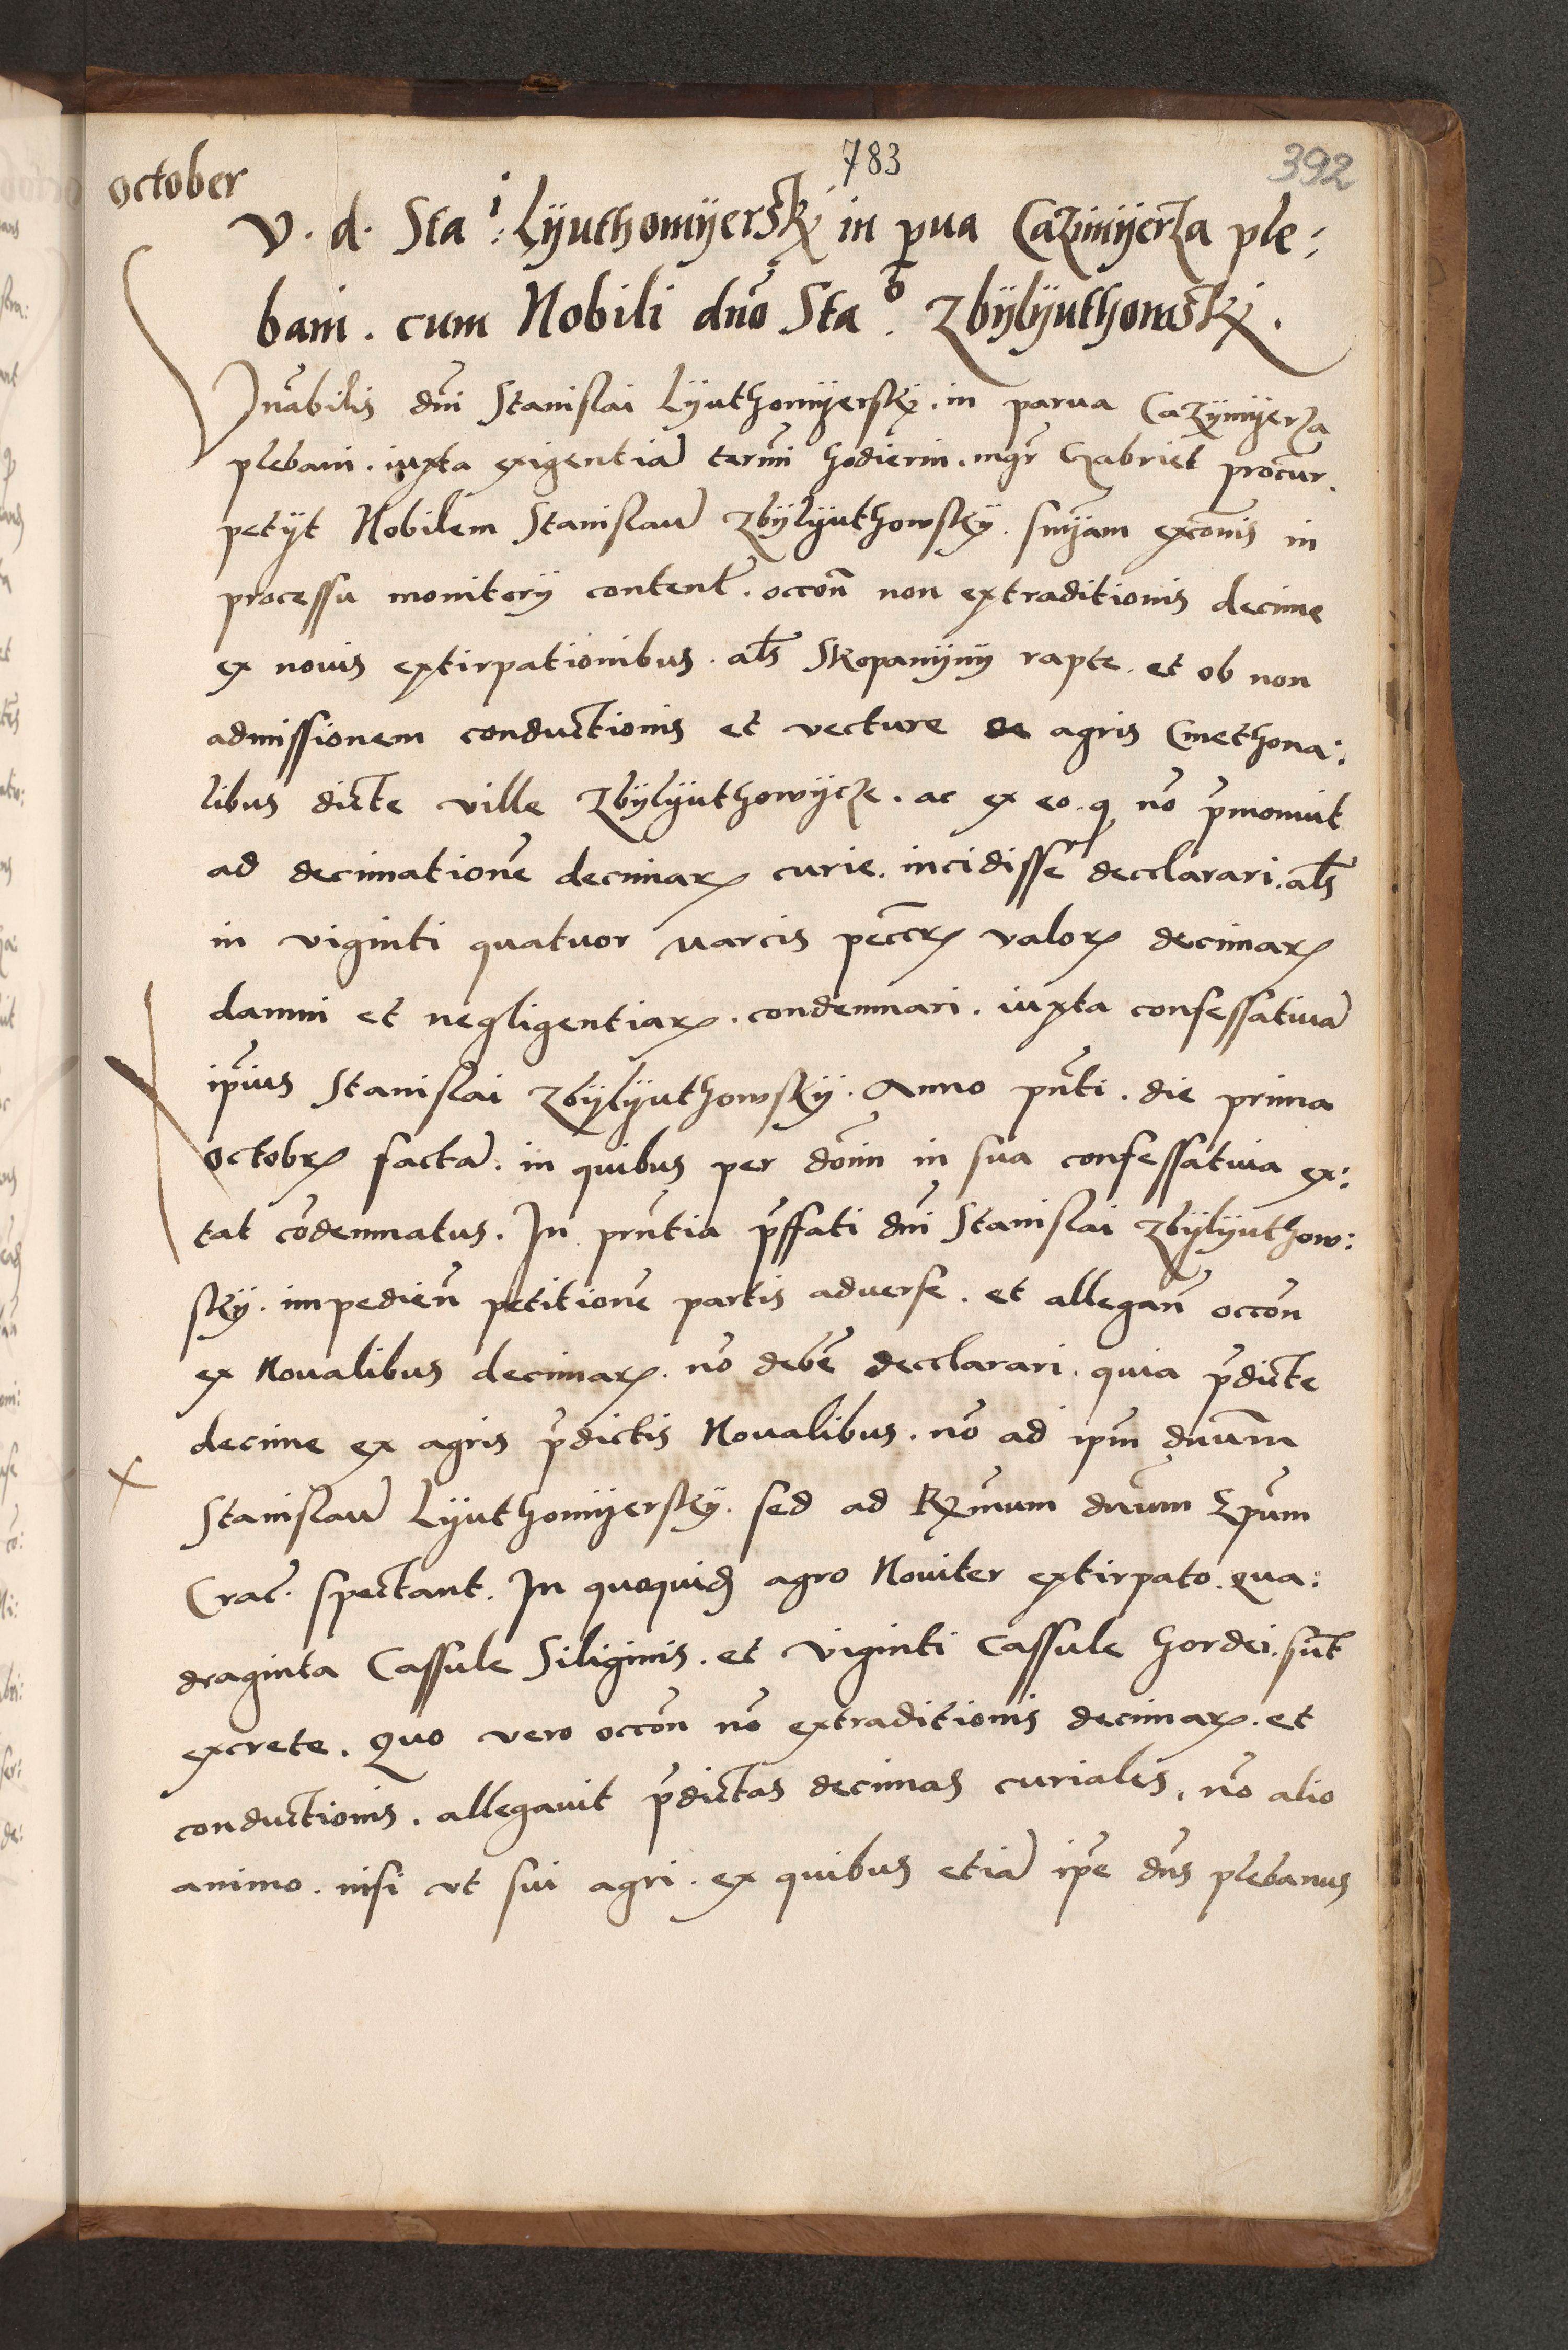 783
392
October
V. d. Sta^i: Lyuthomyerskÿ in pua Cazimyerza ple:
bani. cum Nobili dnō Sta^o. Zbylyuthowskÿ.
Vnābilis dnī Stanislai Lyuthomyerskÿ. in parua Cazymyerza
plebani. iuxta exigentiā termī hodierni. mgr̄ Gabriel procur̄.
petyt Nobilem Stanislaū Zbylyuthowskÿ. snÿam exconīs in
processu monitorÿ content̄. occon̄ non extraditionis decime
ex nouis extirpationibus. al̄s Skopanyny rapte. et ob non
admissionem conductionis et vecture de agris Cmethona:
libus dicte ville Zbylyuthowycze. ac ex eo. q nō p̄monuit
ad decimationē decimarꝝ curie. incidisse declarari. al̄s
in viginti quatuor marcis peccrꝝ valorꝝ decimarꝝ
damni et negligentiarꝝ. condemnari. iuxta confessatiuā
ip̄ius Stanislai Zbylyuthowskÿ. Anno pn̄ti. die prima
Octobrꝝ factā. in quibus per dōīm in sua confessatiua ex:
tat cōdemnatus. In prn̄tia p̄ffati dnī Stanislai Zbylyuthow:
skÿ. impedien̄ petitionē partis aduerse. et allegan̄ occōn
ex Noualibus decimarꝝ. nō debē declarari. quia p̄dicte
decime ex agris p̄dictis Noualibus. nō ad ipm̄ dnū̄m
Stanislaū Lyuthomyerskÿ. sed ad Rꝝmum dnūm Epūm
Crac̄. spectant. In quoquidꝫ agro Nouiter extirpato. qua:
draginta Cassule Siliginis. et viginti Cassule hordei. sūt
excrete. Quo vero occōn nō extraditionis decimarꝝ. et
conductionis. allegauit p̄dictas decimas curiales, nō alio
animo. nisi vt sui agri. ex quibus etiā ipē dn̄s plebanus